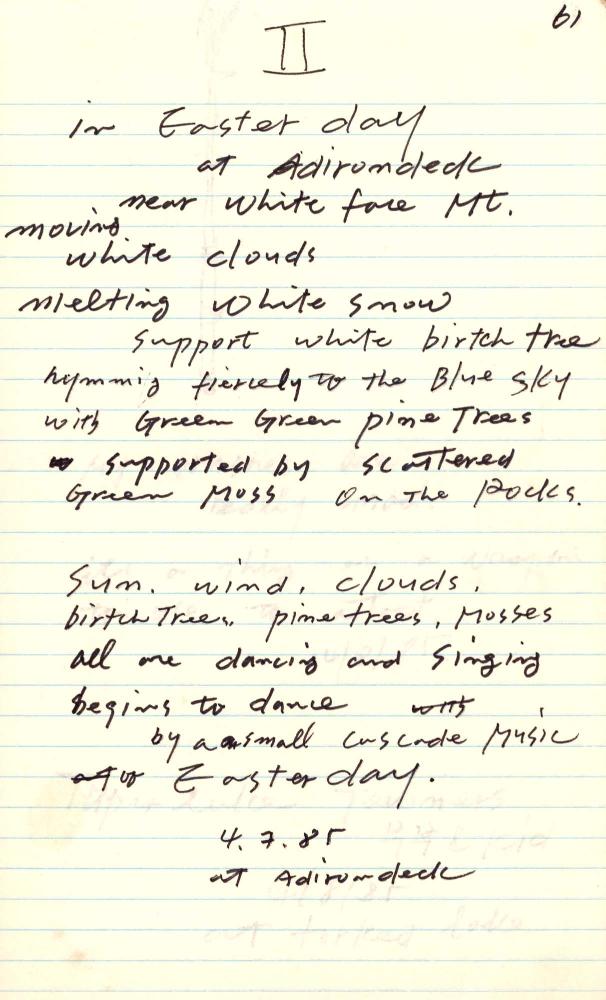 61
II
in Easter day
at Adirondeck
near White face Mt.
moving
white clouds
melting white snow
support white birtch tree
hymmig fiercely to the Blue sky
with Green Green pine Trees
supported by scattered
Green Moss on The Rocks.
Sun. wind. clouds.
birtch Trees. pine trees, Mosses
all are dancing and singing
begins to dance with
by a small cascade Music
of Easter day.
4.7.85
at Adirondeck